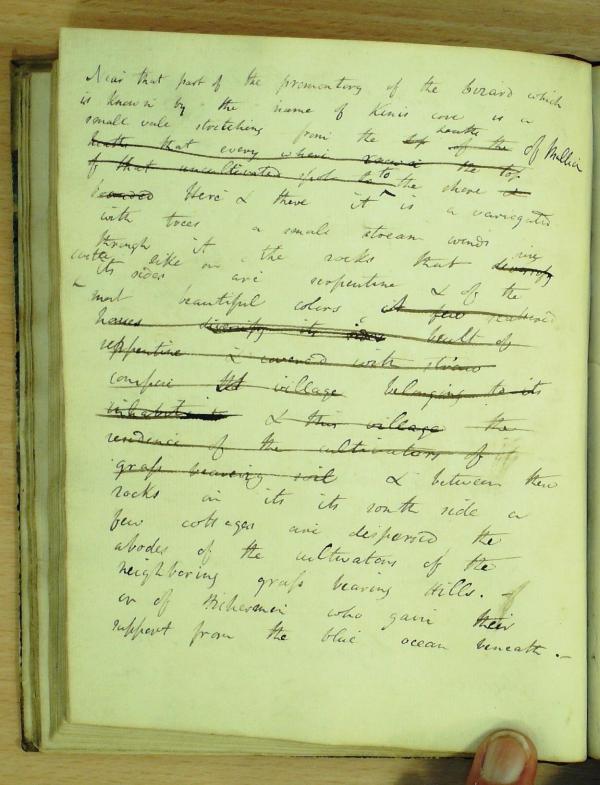 Near that part of the promontory of the Lizard which
is known by the name of Kenis cove is a
small vale stretching from the top of the heath of Mullion
heath that every where round the top
of that uncultivated spot to to the shore is
bounded Here & there it is a variegated
with trees a small stream winds
through it the rocks that diversify rise
with like on
its sides are serpentine & of the
most beautiful colors, A few scattered
houses diversify its sides built of
serpentine & covered with straw
compose the village belonging to its
inhabitants & this village the
residence of the cultivators of it
grass bearing soil & between these
rocks on its its south side a
few cottages are dispersed the
abodes of the cultivators of the
neighboring grass bearing Hills. –
or of Fishermen who gain their
support from the blue ocean beneath. –